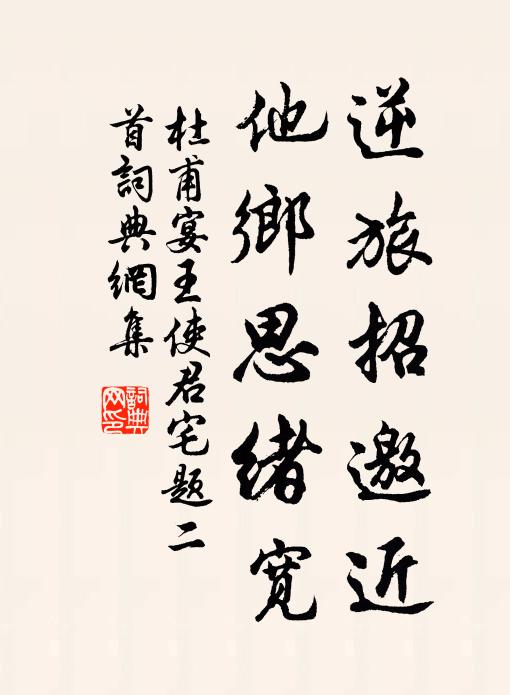 逆旅招邀近
他鄉思緒寬
杜甫宴王使君宅題二
首詞典網集
詞典网印